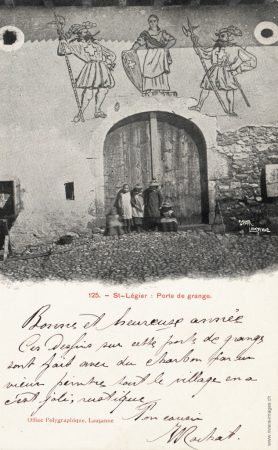 125. - St-Légier : Porte de grange.
Bonne et heureuse année
Ces dessins sur cette porte de grange
sont fait avec du charbon par un
vieux peintre tout le village en a
c'est joli, rustique
Ton cousin
Office Polygraphique, Lausanne
Rochat.
www.notrehistoire.ch